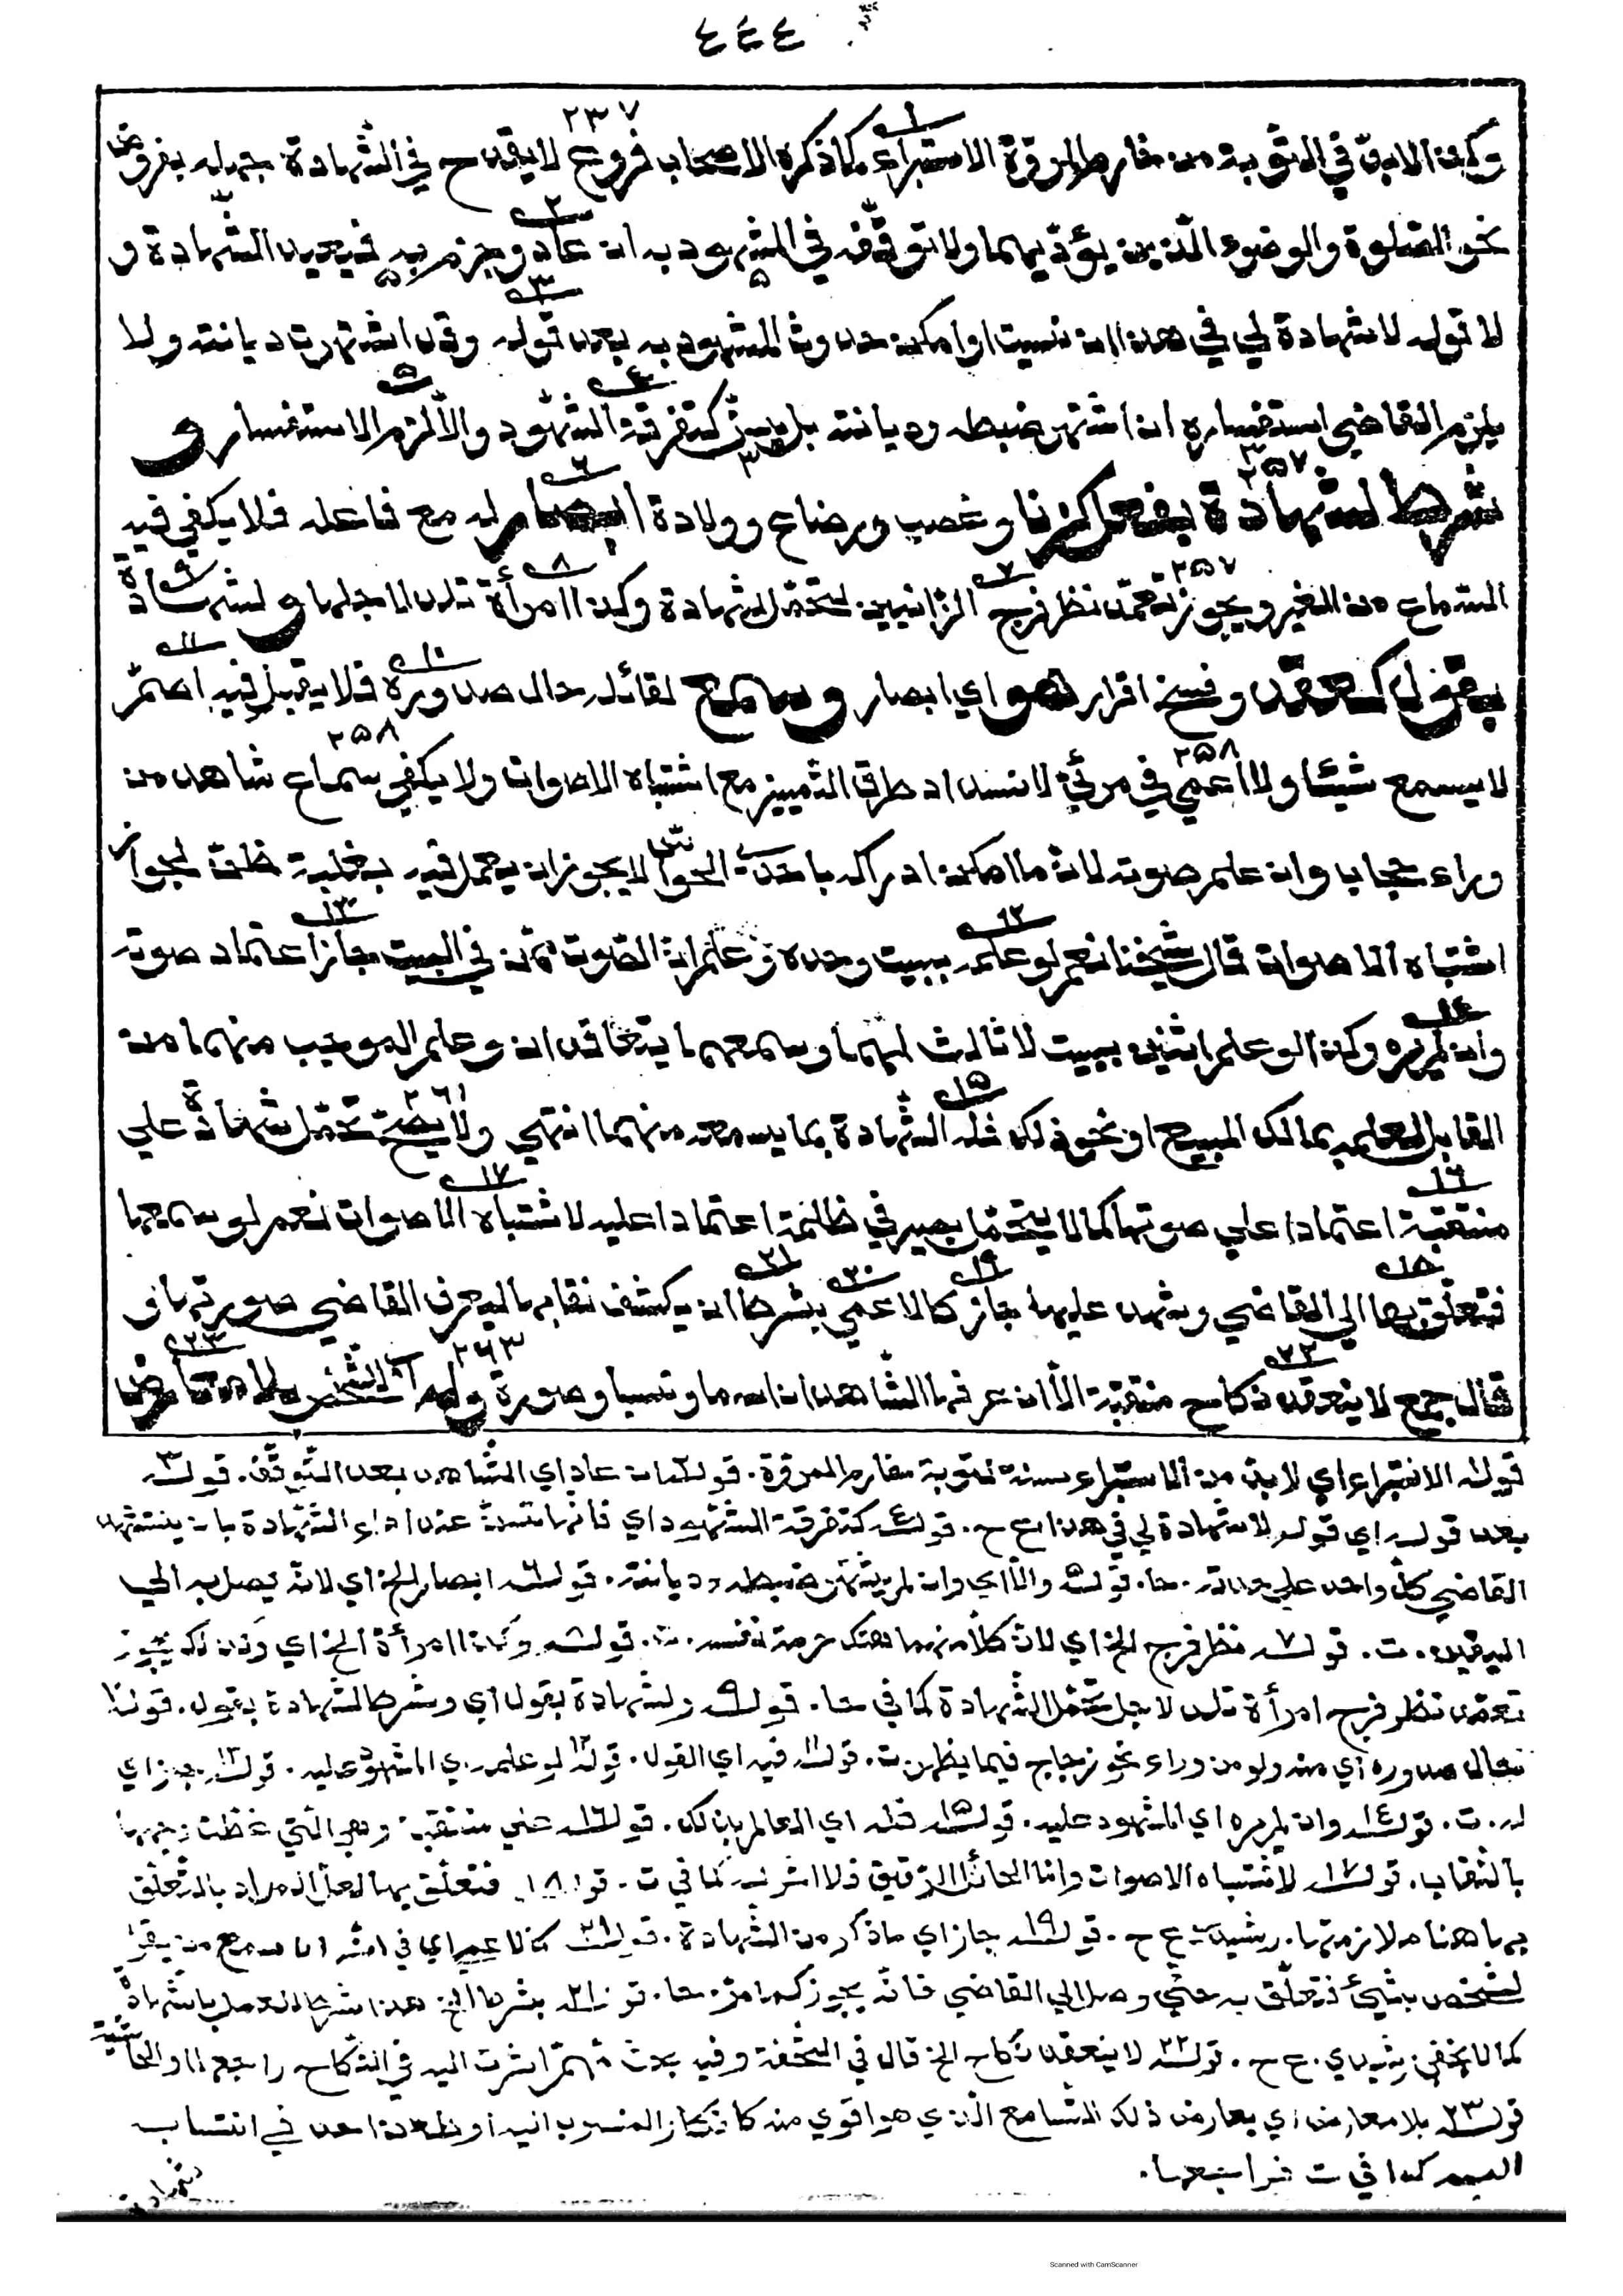 ٤٤٤
٢٣٧
وكذا لا بدّ في التوبة من خارم المروّة الاستبراء كما ذكره الاصحاب فروع لا يقدح في الشهادة جهله بفروض
نحو الصلوة والوضوء الّذين يؤدّيهما ولا توقّفه في المشهود به ان عاد وجزم به فيعيد الشهادة و
لا قوله لا شهادة لي في هذا ان نسيت او امكن حدوث المشهود به بعد قوله وقد اشتهرت ديانته ولا
يلزم القاضي استفساره ان اشتهر ضبطه وديانته بل يسنّ كتفرقة الشهود والّا لزم الاستفسار و
٢٥٧
شرط لشهادة بفعل كزنا وغصب ورضاع وولادة ابصار له مع فاعله فلا يكفي فيه
٢٥٧
السماع من الغير ويجوز تعمّد نظر فرج الزانيين لتحمّل شهادة وكذا امرأة تلد لاجلها و لشهادة
بقول كعقد وفسخ اقرار هو اي ابصار وسمع لقائله حال صدوره فلا يقبل فيه اصمّ
٢٥٨ ٢٥٨
لا يسمع شيئا ولا اعمى في مرئيّ لانسداد طرق التمييز مع اشتباه الاصوات ولا يكفي سماع شاهد من
وراء حجاب وان علم صوته لانّ ما امكن ادراكه باحدى الحواسّ لا يجوز ان يعمل فيه بغلبة ظنّ لجواز
اشتباه الاصوات قال شيخنا نعم لو علمه ببيت وحده وعلم انّ الصوت ممّن في البيت جاز اعتماد صوته
وان لم يره وكذا لو علم اثنين ببيت لا ثالث لهما وسمعهما يتعاقدان وعلم الموجب منهما من
القابل لعلمه بمالك المبيع او نحو ذلك فله الشهادة بما يسمعه منهما انتهى ولا يصحّ تحمّل شهادة على
٢٦١
منتقبة اعتمادا على صوتها كما لا يتحمّل بصير في ظلمة اعتمادا عليه لاشتباه الاصوات نعم لو سمعها
فتعلّق بها الى القاضي وشهد عليها جاز كالاعمى بشرط ان يكشف نقابها ليعرف القاضي صورتها و
٢٦٣
قال جمع لا ينعقد نكاح منتقبة الّا ان عرفها الشاهدان اسما ونسبا وصورة وله اي الشخص بلا معارض
قوله الاستبراء اي لا بدّ من الاستبراء سنة لتوبة من خارم المروّة. قوله ان عاد اي الشاهد بعد التوقّف. قوله
بعد قوله اي قوله لا شهادة لي في هذا ع ح. قوله كتفرقة الشهود اي فانّها تسنّ عند اداء الشهادة بان يستشهد
القاضي كلّ واحد على حدته. حا. قوله والّا اي وان لم يشتهر ضبطه وديانته. قوله ابصار الخ اي لانّه يصل به الى
اليقين. ت. قوله نظر فرج الخ اي لانّ كلّا منهما هتك حرمة نفسه. ت. قوله وكذا امرأة الخ اي وكذلك يجوز
تعمّد نظر فرج امرأة تلد لاجل تحمّل الشهادة كما في حا. قوله ولشهادة بقول اي وشرط لشهادة بقول. قوله
حال صدوره اي منه ولو من وراء نحو زجاج فيما يظهر. ت. قوله فيه اي القول. قوله لو علمه اي المشهود عليه. قوله جاز اي
له. ت. قوله وان لم يره اي المشهود عليه. قوله فله اي العالم بذلك. قوله على منتقبة وهي الّتي غطّت وجهها
بالنقاب. قوله لاشتباه الاصوات وامّا الحائل الرقيق فلا اثر له كما في ت. قوله فتعلّق بها لعلّ المراد بالتعلّق
بها هنا ملازمتها. رشيدي. ع ح. قوله جاز اي ما ذكر من الشهادة. قوله كالاعمى اي في انّه اذا سمع من يقرّ
لشخص بشيئ فتعلّق به حتّى وصل الى القاضي فانّه يجوز كما مرّ. حا. قوله بشرط الخ هذا شرط للعمل بالشهادة
كما لا يخفى. رشيدي. ع ح. قوله لا ينعقد نكاح الخ قال في التحفة وفيه بحث ثمّ اشرت اليه في النكاح راجعها والحاشية
قوله بلا معارض اي يعارض ذلك التسامع الّذي هو اقوى منه كانكار المنسوب اليه او طعن احد في انتساب
اليه كذا في ت فراجعها.
شهادة
Scanned with CamScanner